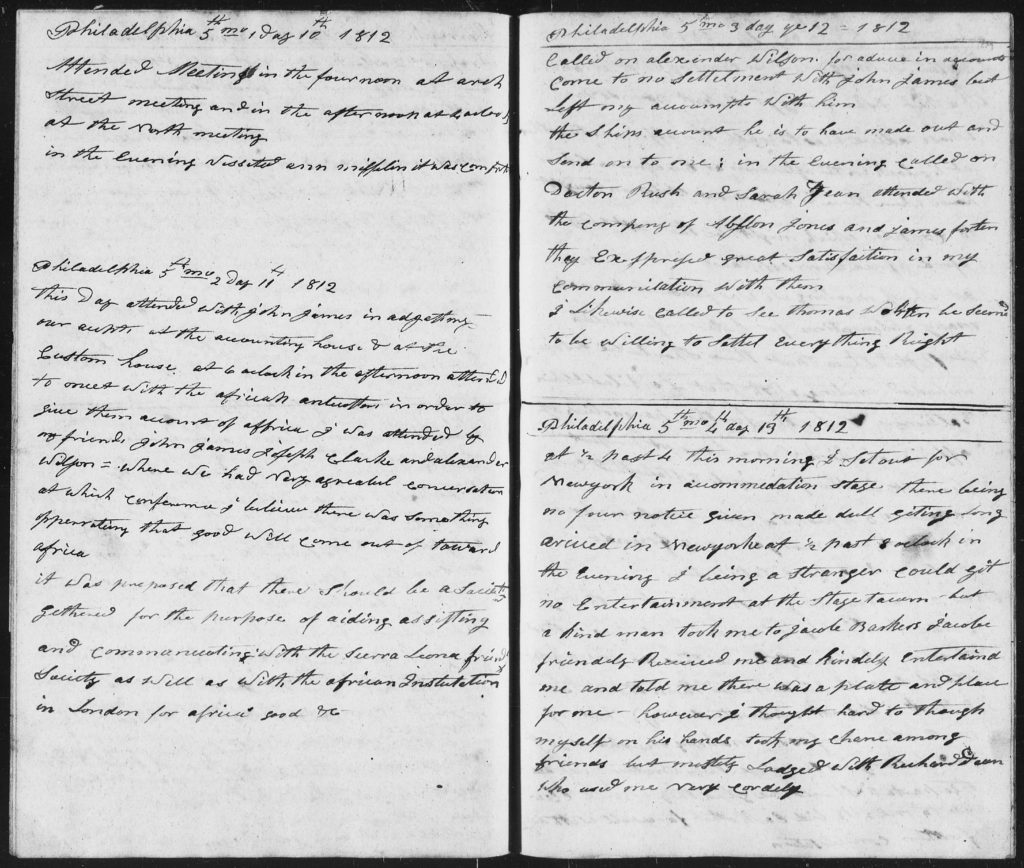 Philadelphia 5th mo 1 day 10th 1812
Attended Meeting in the fournoon at arch
Street meeting and in the after noon at 4 oclock
at the North meeting
in the Evening Vesseted ann mifflin it was comfort
Philadelphia 5th mo 2 day 11th 1812
this Day attended with John James in adgetting
our acupts at the accounting house & at the
Custom house, at 6 oclock in the afternoon attend
to meet with the african in order to
give them account of affrica I was attended by
my friends John James Joseph Clarke and alexander
Wilson = where we had very agreabel conversation
at which conference I believe there was Something
opperrating that good will come out of toward
africa
it was proposed that there Should be a Society
gethered for the purpose of aiding assisting
and communicating with the Sierra Leona frind
Society as will as with the african Instutution
in London for africa good &c
Philadelphia 5th mo 3 day ye 12 = 1812
Called on alexender Wilson for advice in accounts
Come to no Settelment with John James but
left my accoumpts with him
the Ships acount he is to have made out and
Send on to me; in the Evening Called on
Docton Rush and Sarah attended with
the compeny of Abslon Jones and James forten
they Expressed great Satisfaction in my
Communication with them
I Likewise called to See thomas he Seemed
to be willing to Settel Everything Right
Philadelphia 5th mo 4th day 13th 1812
at ½ past 4 this morning I Set out for
Newyork in acommedation Stage there being
no four notice given made dull giting long
arived in Newyorke at ½ past 8 oclock in
the Evening I being a Stranger could git
no Entertainment at the Stage tavern but
a kind man took me to Jacob Barkers Jacobe
friendely Recived me and kindely Entertaind
me and told me there was a plate and place
for me - however I thought hard to though
myself on his hands took my among
friends but mostly Lodged with Richard
who used me very cordely